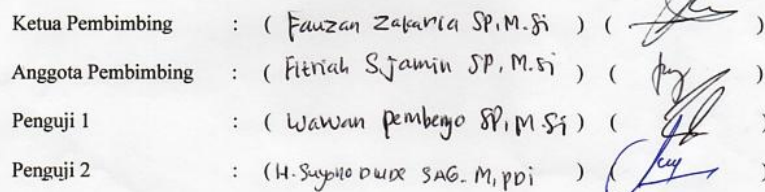 Ketua Pembimbing : ( Fauzan Zakaria SP, M.Si ) ( )
Anggota Pembimbing : ( Fitriah S.Jamin SP, M.Si ) ( )
Penguji 1 : ( Wawan Pembengo SP, M.Si ) ( )
Penguji 2 : ( H. Suyono Dude SAG. M, pdi ) ( )